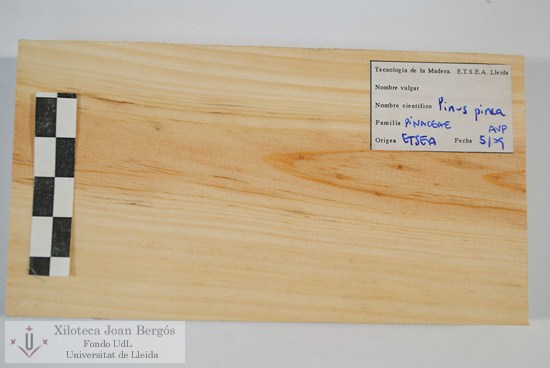 Tecnología de la Madera. E.T.S.E.A. Lleida
Nombre vulgar
Nombre científico Pinus pinea
Familia PINACEAE AVP
Origen ETSEA Fecha 5/79
Xiloteca Joan Bergós
Fondo UdL
Universitat de Lleida